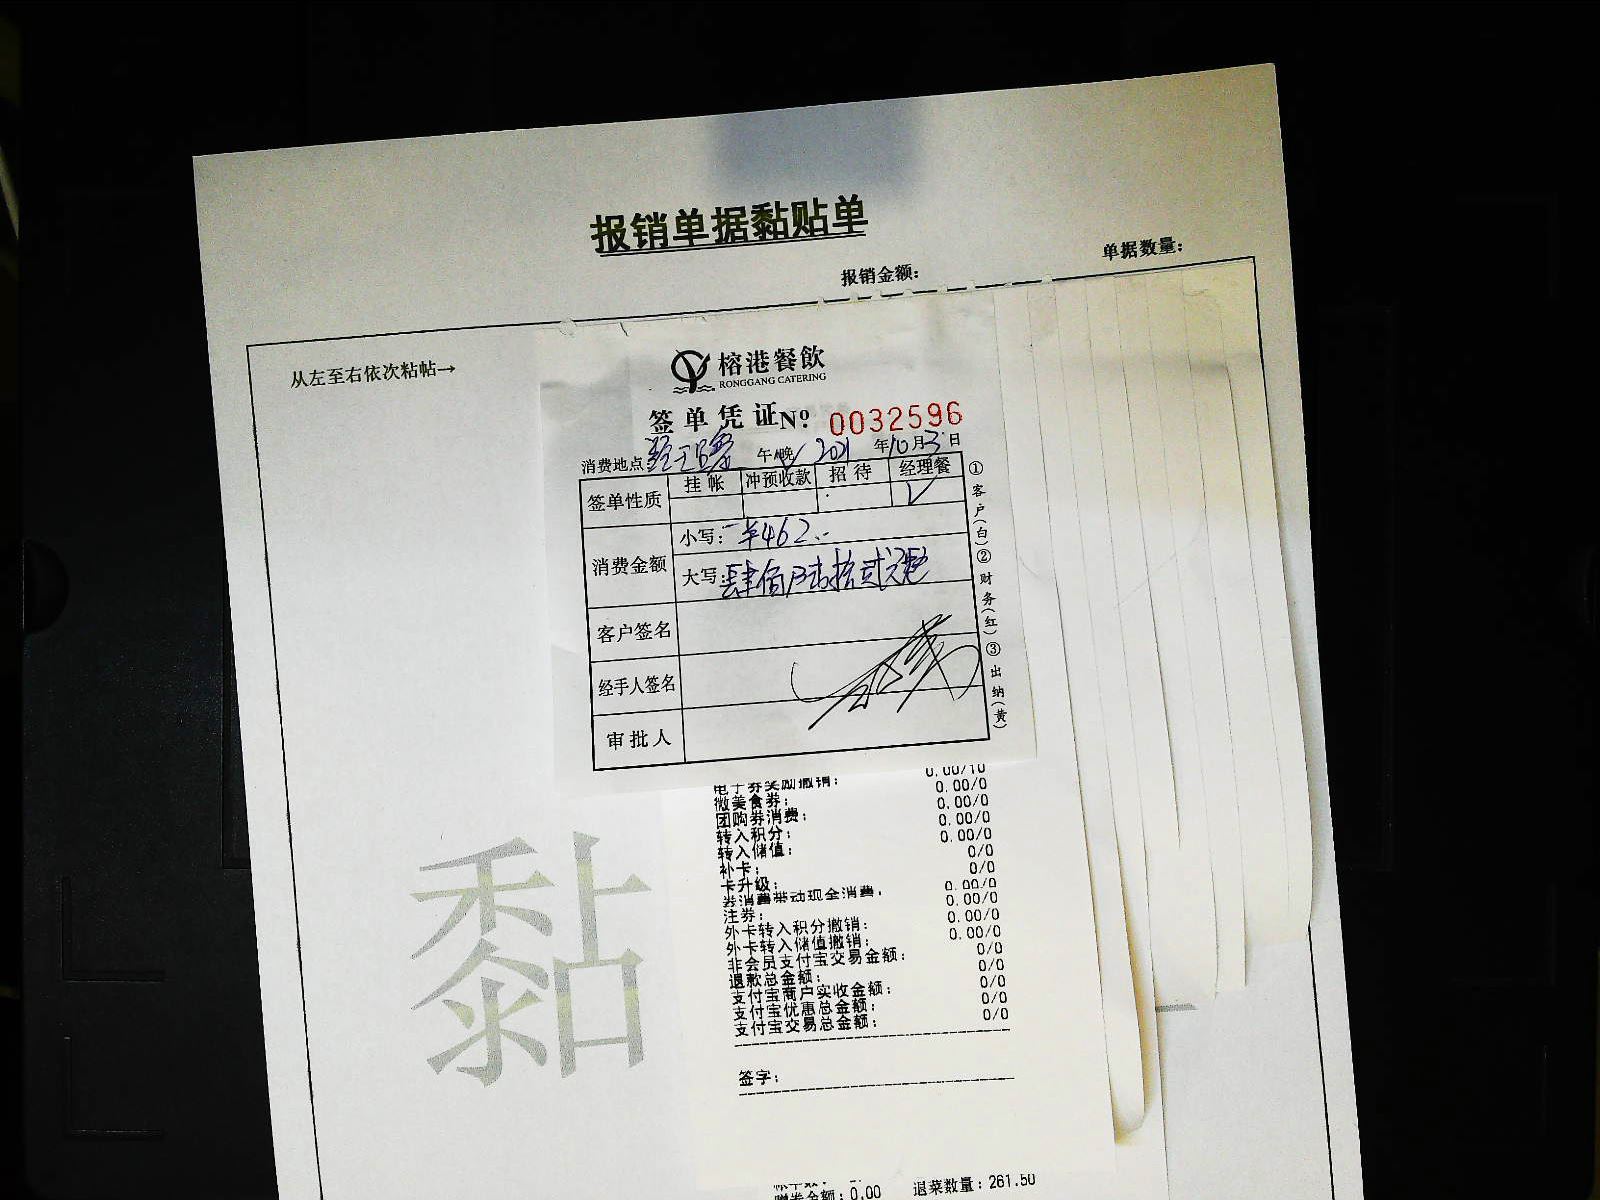 报销单据黏贴单
报销金额：
单据数量：
从左至右依次粘帖→
榕港餐飲
RONGGANG CATERING
签单凭证№ 0032596
消费地点 午/晚 2021年10月3日
签单性质 挂帐 冲预收款 招待 经理餐
消费金额 小写：￥462
大写：肆佰陆拾贰元整
客户签名
经手人签名
审批人
①客户(白)②财务(红)③出纳(黄)
电子券奖励撤销： 0.00/10
微美食券： 0.00/0
团购券消费： 0.00/0
转入积分： 0.00/0
转入储值： 0.00/0
补卡： 0/0
卡升级： 0/0
券消费带动现金消费： 0.00/0
注券： 0.00/0
外卡转入积分撤销： 0.00/0
外卡转入储值撤销： 0.00/0
非会员支付宝交易金额： 0/0
退款总金额： 0/0
支付宝商户实收金额： 0/0
支付宝优惠总金额： 0/0
支付宝交易总金额： 0/0
签字：
黏
赠券金额：0.00 退菜数量：261.50